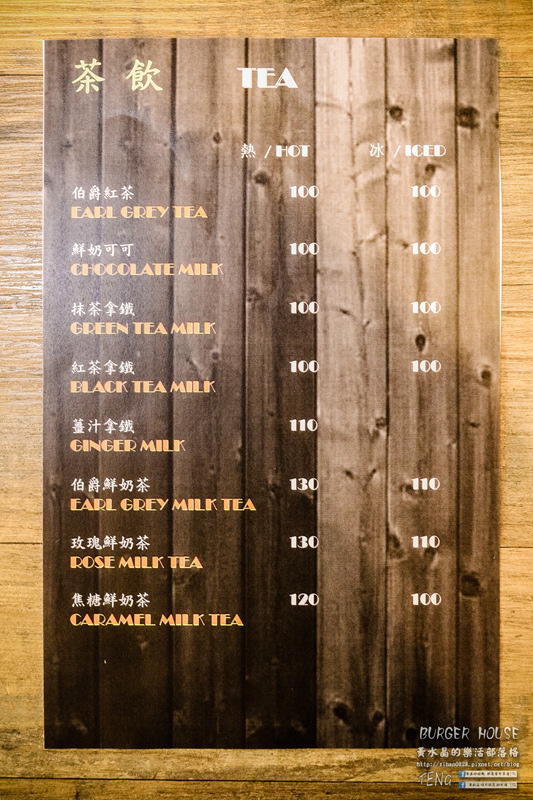 茶飲 TEA
熱 / HOT 冰 / ICED
伯爵紅茶 100 100
EARL GREY TEA
鮮奶可可 100 100
CHOCOLATE MILK
抹茶拿鐵 100 100
GREEN TEA MILK
紅茶拿鐵 100 100
BLACK TEA MILK
薑汁拿鐵 110
GINGER MILK
伯爵鮮奶茶 130 110
EARL GREY MILK TEA
玫瑰鮮奶茶 130 110
ROSE MILK TEA
焦糖鮮奶茶 120 100
CARAMEL MILK TEA
BURGER HOUSE
黃水晶的樂活部落格
http://sihan0828.pixnet.net/blog
TENG